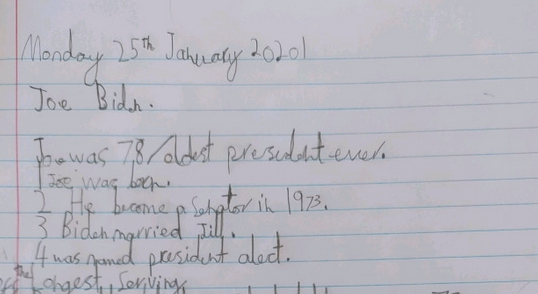 Monday 25th January 20201
Joe Bidn.
Joe was 78/oldest presudent ever.
1 Joe was born.
2 He become a Senator in 1973.
3 Biden married Jill.
4 was named president alect.
the
Longest, Serving